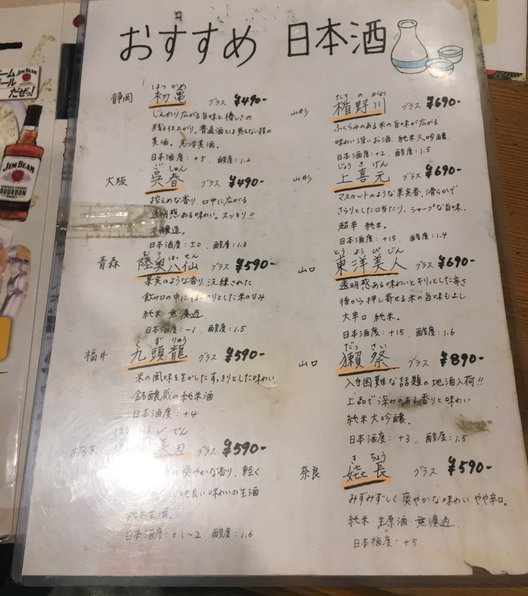 おすすめ 日本酒
静岡 初亀 はつかめ グラス ¥490-
じんわり広がる旨味と優しさの
美酒。
日本酒度:+5 酸度:1.2
大阪 呉春 ごしゅん グラス ¥490-
控えめな香り 口中に広がる
透明感ある味わい。スッキリ!!
本醸造。
日本酒度:±0 酸度:1.3
青森 陸奥八仙 グラス ¥590-
果実のような香り、洗練された
飲み口の中にほっこりとした米の甘み
純米 無濾過
日本酒度:-1 酸度:1.5
福井 九頭龍 ずりゅう グラス ¥590-
米の風味を生かしたすっきりとした味わい
銘醸蔵の純米酒
日本酒度:+4
グラス ¥590-
爽やかな香り、軽く
良い味わいの生酒
日本酒度:+1~2 酸度:1.6
山形 楯野川 たてのがわ グラス ¥690-
ふくらみのある米の旨味が広がる
味わい深いお酒。純米大吟醸。
日本酒度:+2 酸度:1.5
山形 上喜元 じょうきげん グラス ¥690-
マスカットのような果実香、滑らかで
さらりとした口当たり、シャープな旨味。
超辛 純米。
日本酒度:+15 酸度:1.4
山口 東洋美人 とうようびじん グラス ¥690-
透明感ある味わいとキリッとした辛さ
後から押し寄せる米の旨味もよし
大辛口 純米。
日本酒度:+15 酸度:1.6
山口 獺祭 だっさい グラス ¥890-
入手困難な話題の地酒入荷!!
上品で深みのある香りと味わい
純米大吟醸。
日本酒度:+3 酸度:1.5
奈良 嬉長 きちょう グラス ¥590-
みずみずしく爽やかな味わい やや辛口。
純米 生原酒 無濾過
日本酒度:+5
JIM BEAM
だぜっ!
JIM BEAM
BOURBON